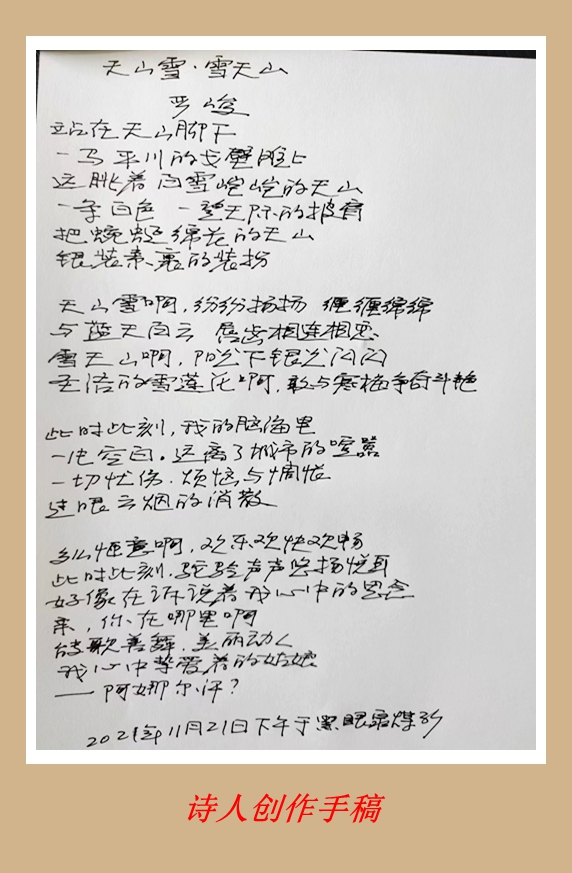 天山雪·雪天山
严峻
站在天山脚下
一马平川的戈壁滩上
远眺着白雪皑皑的天山
一条白色 一望无际的披肩
把蜿蜒绵长的天山
银装素裹的装扮
天山雪啊,纷纷扬扬 缠缠绵绵
与蓝天白云 唇齿相连相思
雪天山啊,阳光下银光闪闪
圣洁的雪莲花啊,敢与寒梅争奋斗艳
此时此刻,我的脑海里
一片空白。远离了城市的喧嚣
一切忧伤.烦恼与惆怅
过眼云烟的消散
多么惬意啊,欢乐欢快欢畅
此时此刻.驼铃声声悠扬悦耳
好像在诉说着我心中的思念
亲,你在哪里啊
能歌善舞.美丽动人
我心中挚爱着的姑娘
——阿娜尔汗?
2021年11月21日下午于黑眼泉煤矿
诗人创作手稿